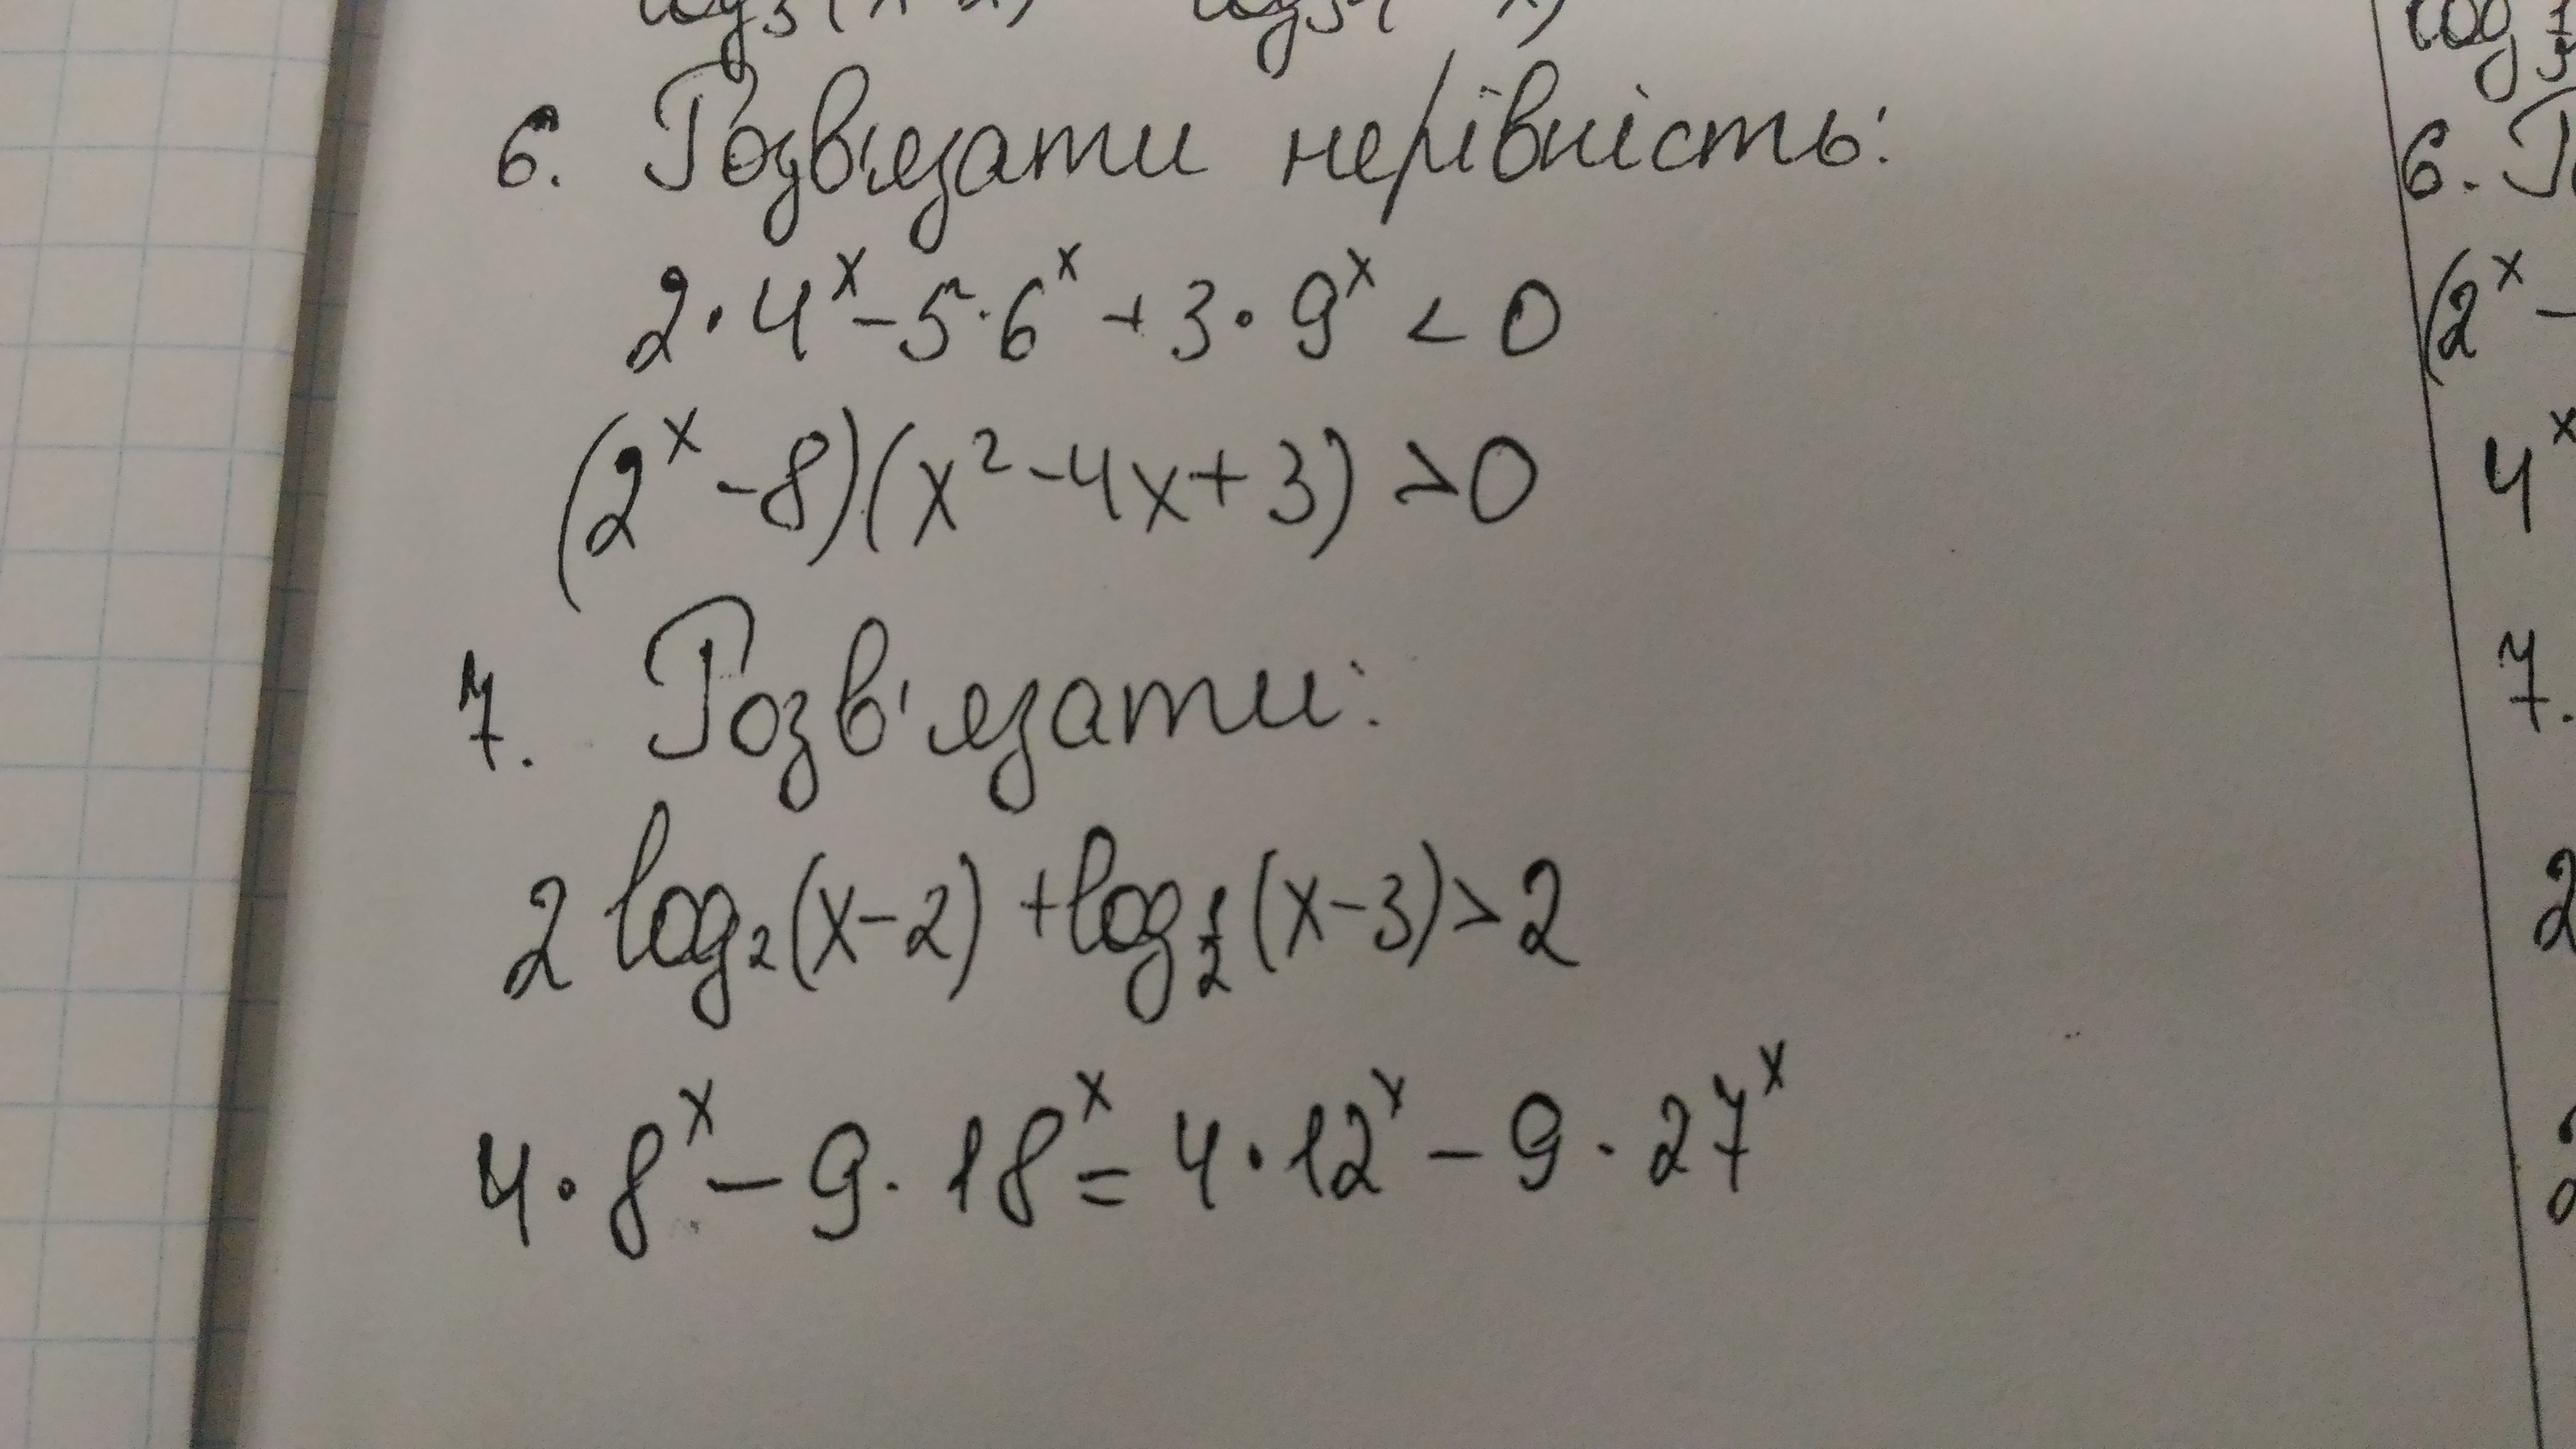 6. Розв'язати нерівність:
2·4ˣ-5·6ˣ+3·9ˣ<0
(2ˣ-8)(x²-4x+3)>0
7. Розв'язати:
2log₂(x-2)+log½(x-3)>2
4·8ˣ-9·18ˣ=4·12ˣ-9·27ˣ
log
6.
(2ˣ-
4ˣ
7.
2